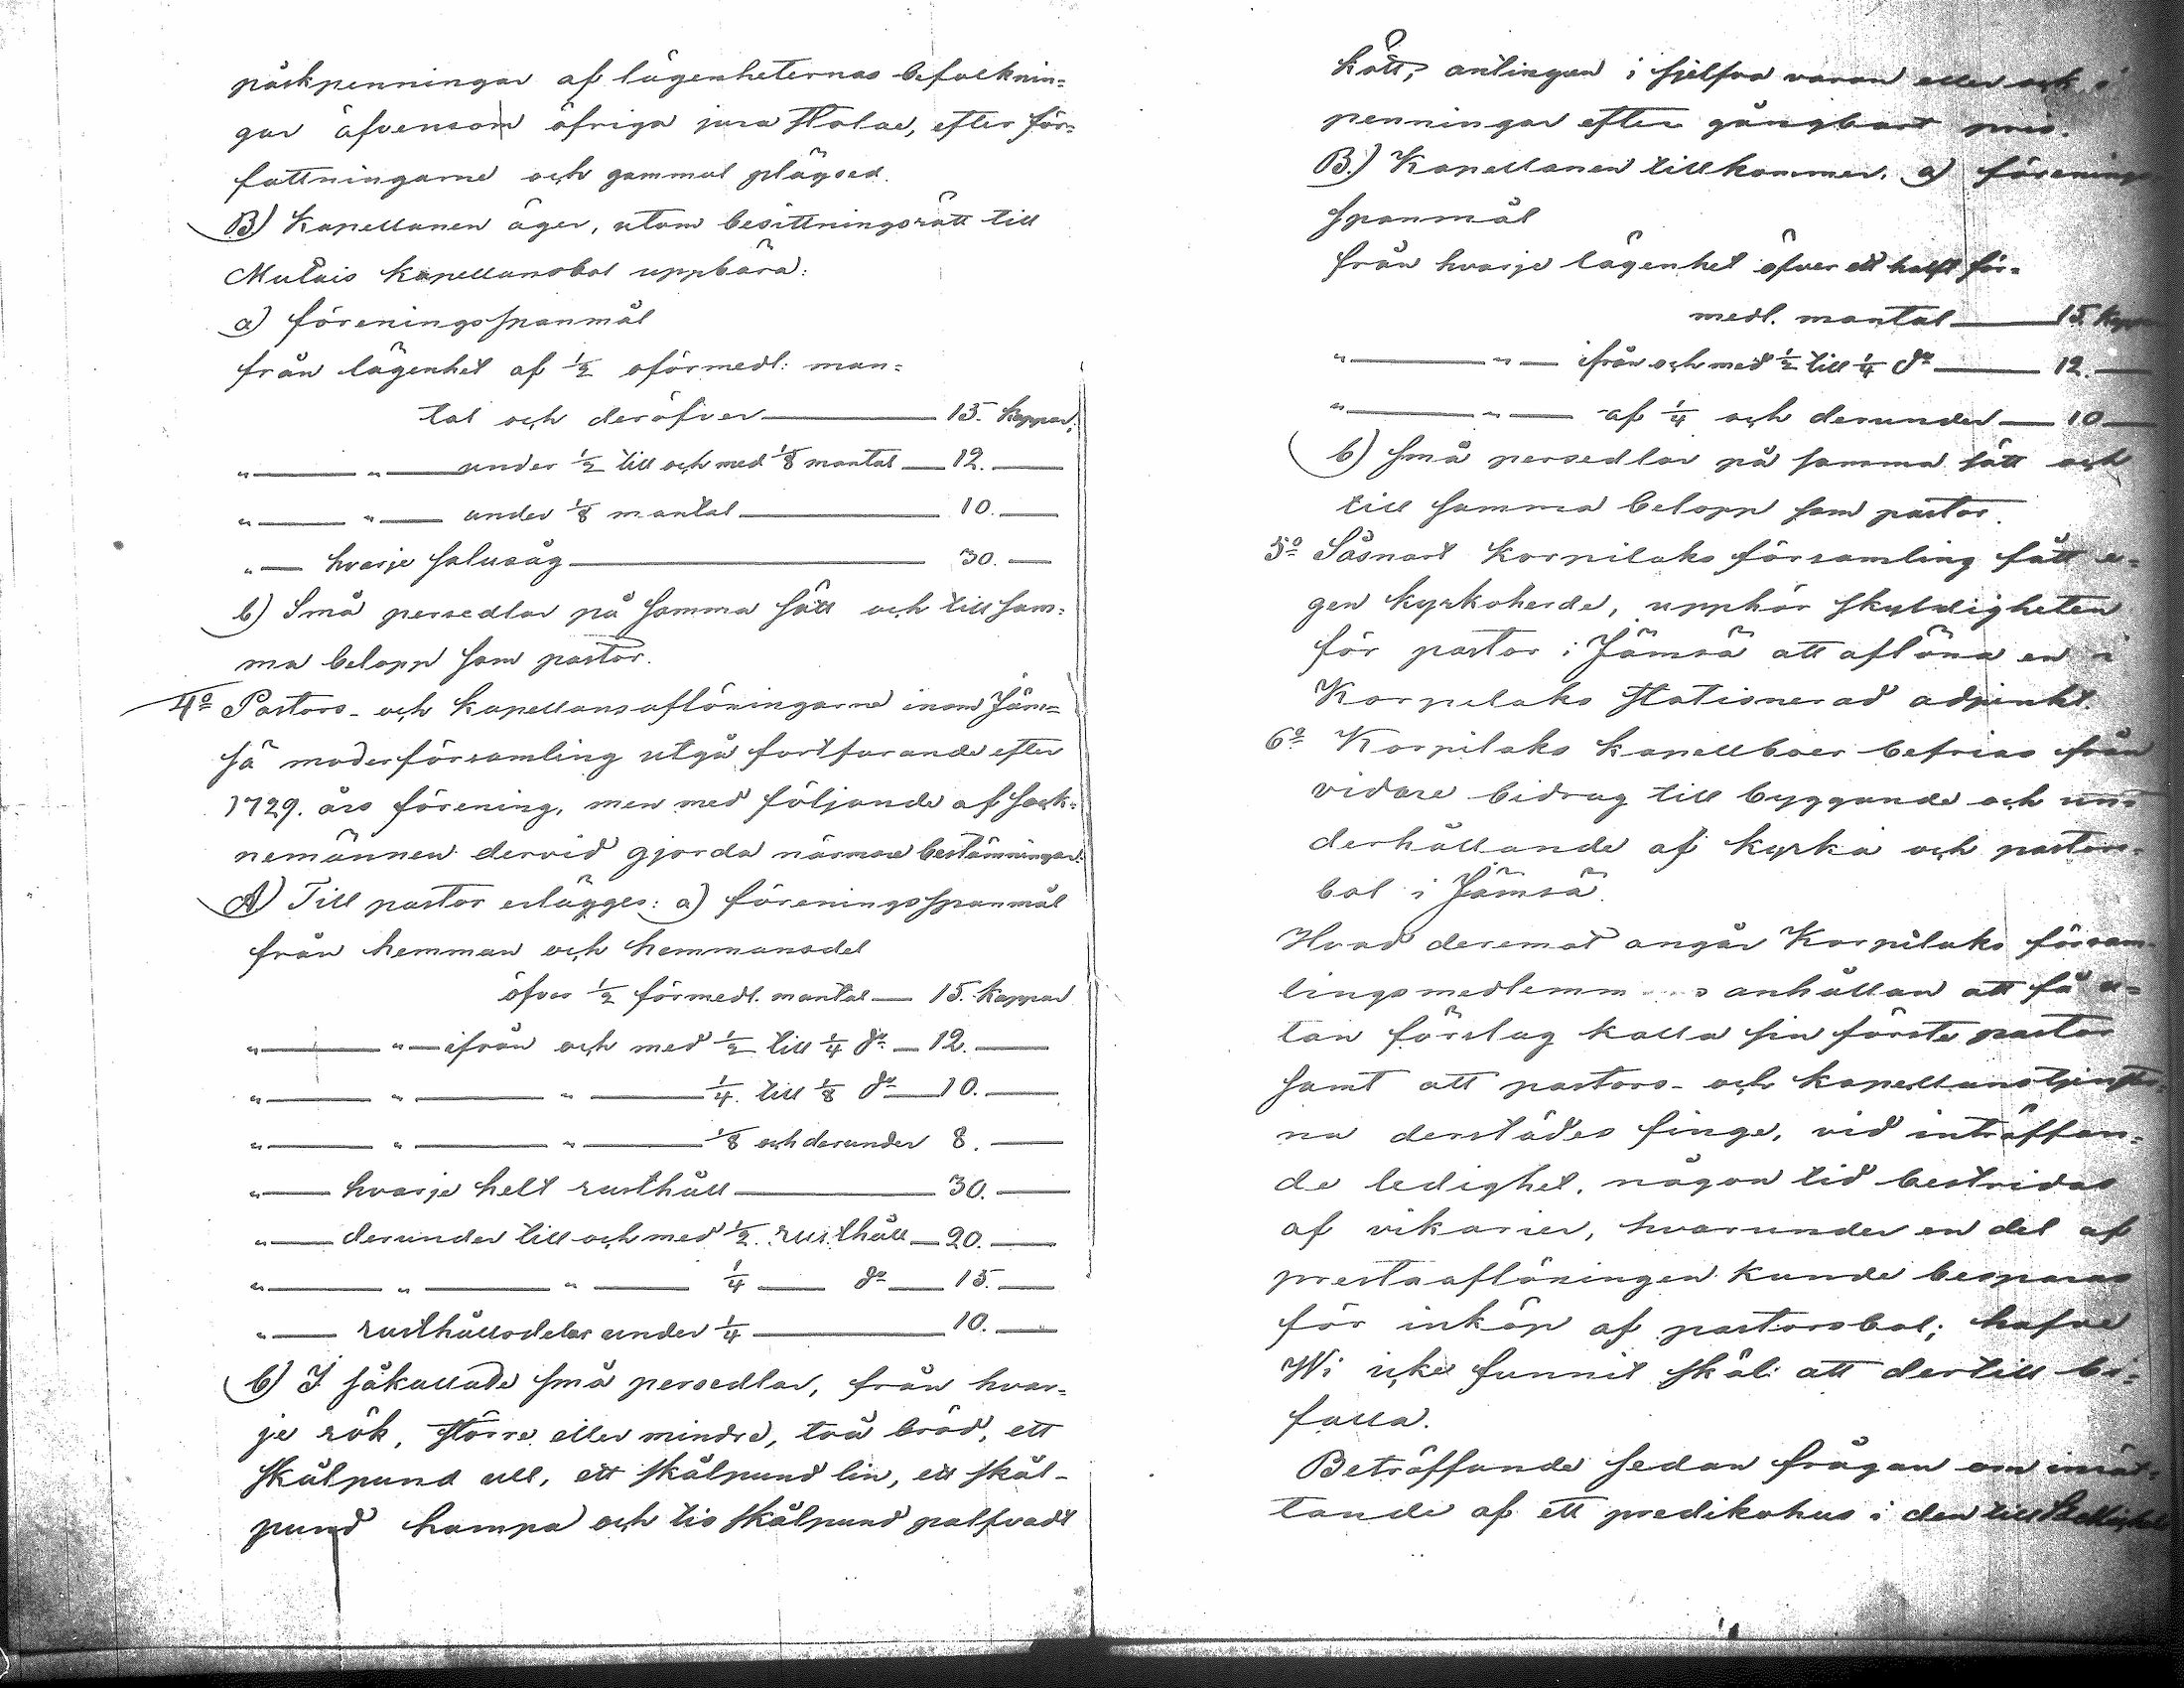 påskpenningar af lägenheternas befolknin=
gar äfvensom öfriga jura Stolae, efter för=
fattningarne och gammal plägsed.
B) Kapellanen äger, utom besittningsrätt till
Mutais kapellansbol uppbära:
a) föreningsspanmål
från lägenhet af ½ oförmedl: man=
tal och deröfver — 15. kappar;
" — " — under ½ till och med ⅛ mantal — 12. —
" — " — under ⅛ mantal — 10. —
" — hvarje salusåg — 30. —
b) Små persedlar på samma sätt och till sam=
ma belopp som pastor.
4º Pastors- och kapellansaflöningarne inom Jäm=
sä moderförsamling utgå fortfarande efter
1729. års förening, men med följande af sock=
nemännen dervid gjorda närmare bestämningar:
A) Till pastor erlägges: a) föreningsspanmål
från hemman och hemmansdel
öfver ½ förmedl. mantal — 15. kappar
" — " — ifrån och med ½ till ¼ dº — 12. —
" — " — " — ¼ till ⅛ dº — 10. —
" — " — " — ⅛ och derunder 8. —
" — hvarje helt rusthåll — 30. —
" — derunder till och med ½ rusthåll — 20. —
" — " — " — ¼ — dº — 15. —
" — rusthållsdelar under ¼ — 10. —
b) I såkallade små persedlar, från hvar=
je rök, större eller mindre, två bröd, ett
skålpund ull, ett skålpund lin, ett skål-
pund hampa och tio skålpund palfvadt
kött, antingen i sjelfva varan eller ock i
penningar efter gångbart pris.
B.) Kapellanen tillkommer. a) förenings
spanmål
från hvarje lägenhet öfver ett halft för=
medl. mantal — 15. kappar
" — " — ifrån och med ½ till ¼ dº — 12. —
" — " — af ¼ och derunder — 10 —
b) Små persedlar på samma sätt och
till samma belopp som pastor.
5º Såsnart Korpilaks församling fått e=
gen kyrkoherde, upphör skyldigheten
för pastor i Jämsä att aflöna en i
Korpilaks stationerad adjunkt.
6º Korpilaks kapellboer befrias från
vidare bidrag till byggande och un=
derhållande af kyrka och pastors-
bol i Jämsä.
Hvad deremot angår Korpilaks försam-
lingsmedlemm...s anhållan att få u=
tan förslag kalla sin förste pastor
samt att pastors- och kapellanstjenster=
na derstädes finge, vid inträffan=
de ledighet, någon tid bestridas
af vikarier, hvarunder en del af
prestaaflöningen kunde besparas
för inköp af pastorsbol; hafve
Wi icke funnit skäl att dertill bi=
falla.
Beträffande sedan frågan om inrät=
tande af ett predikohus i den till